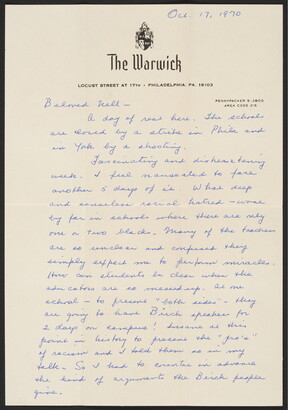 Oct. 17, 1970
The Warwick
LOCUST STREET AT 17TH • PHILADELPHIA, PA. 19103
PENNYPACKER 5-3800
AREA CODE 215
Beloved Nell -
A day of rest here. The schools
are closed by a strike in Phila and
in York by a shooting.
Fascinating and disheartening
week. I feel nauseated to face
another 5 days of it. What deep
and senseless racial hatred - worse
by far in schools where there are only
one or two blacks. Many of the teachers
are so unclear and confused they
simply expect me to perform miracles.
How can students be clear when the
educators are so messed up. At one
school - to present "both sides" - they
are going to have Birch speaker for
2 days on campus! Insane at this
point in history to present the "pro's"
of racism and I told them so in my
talk. So I had to counter in advance
the kind of arguments the Birch people
give.